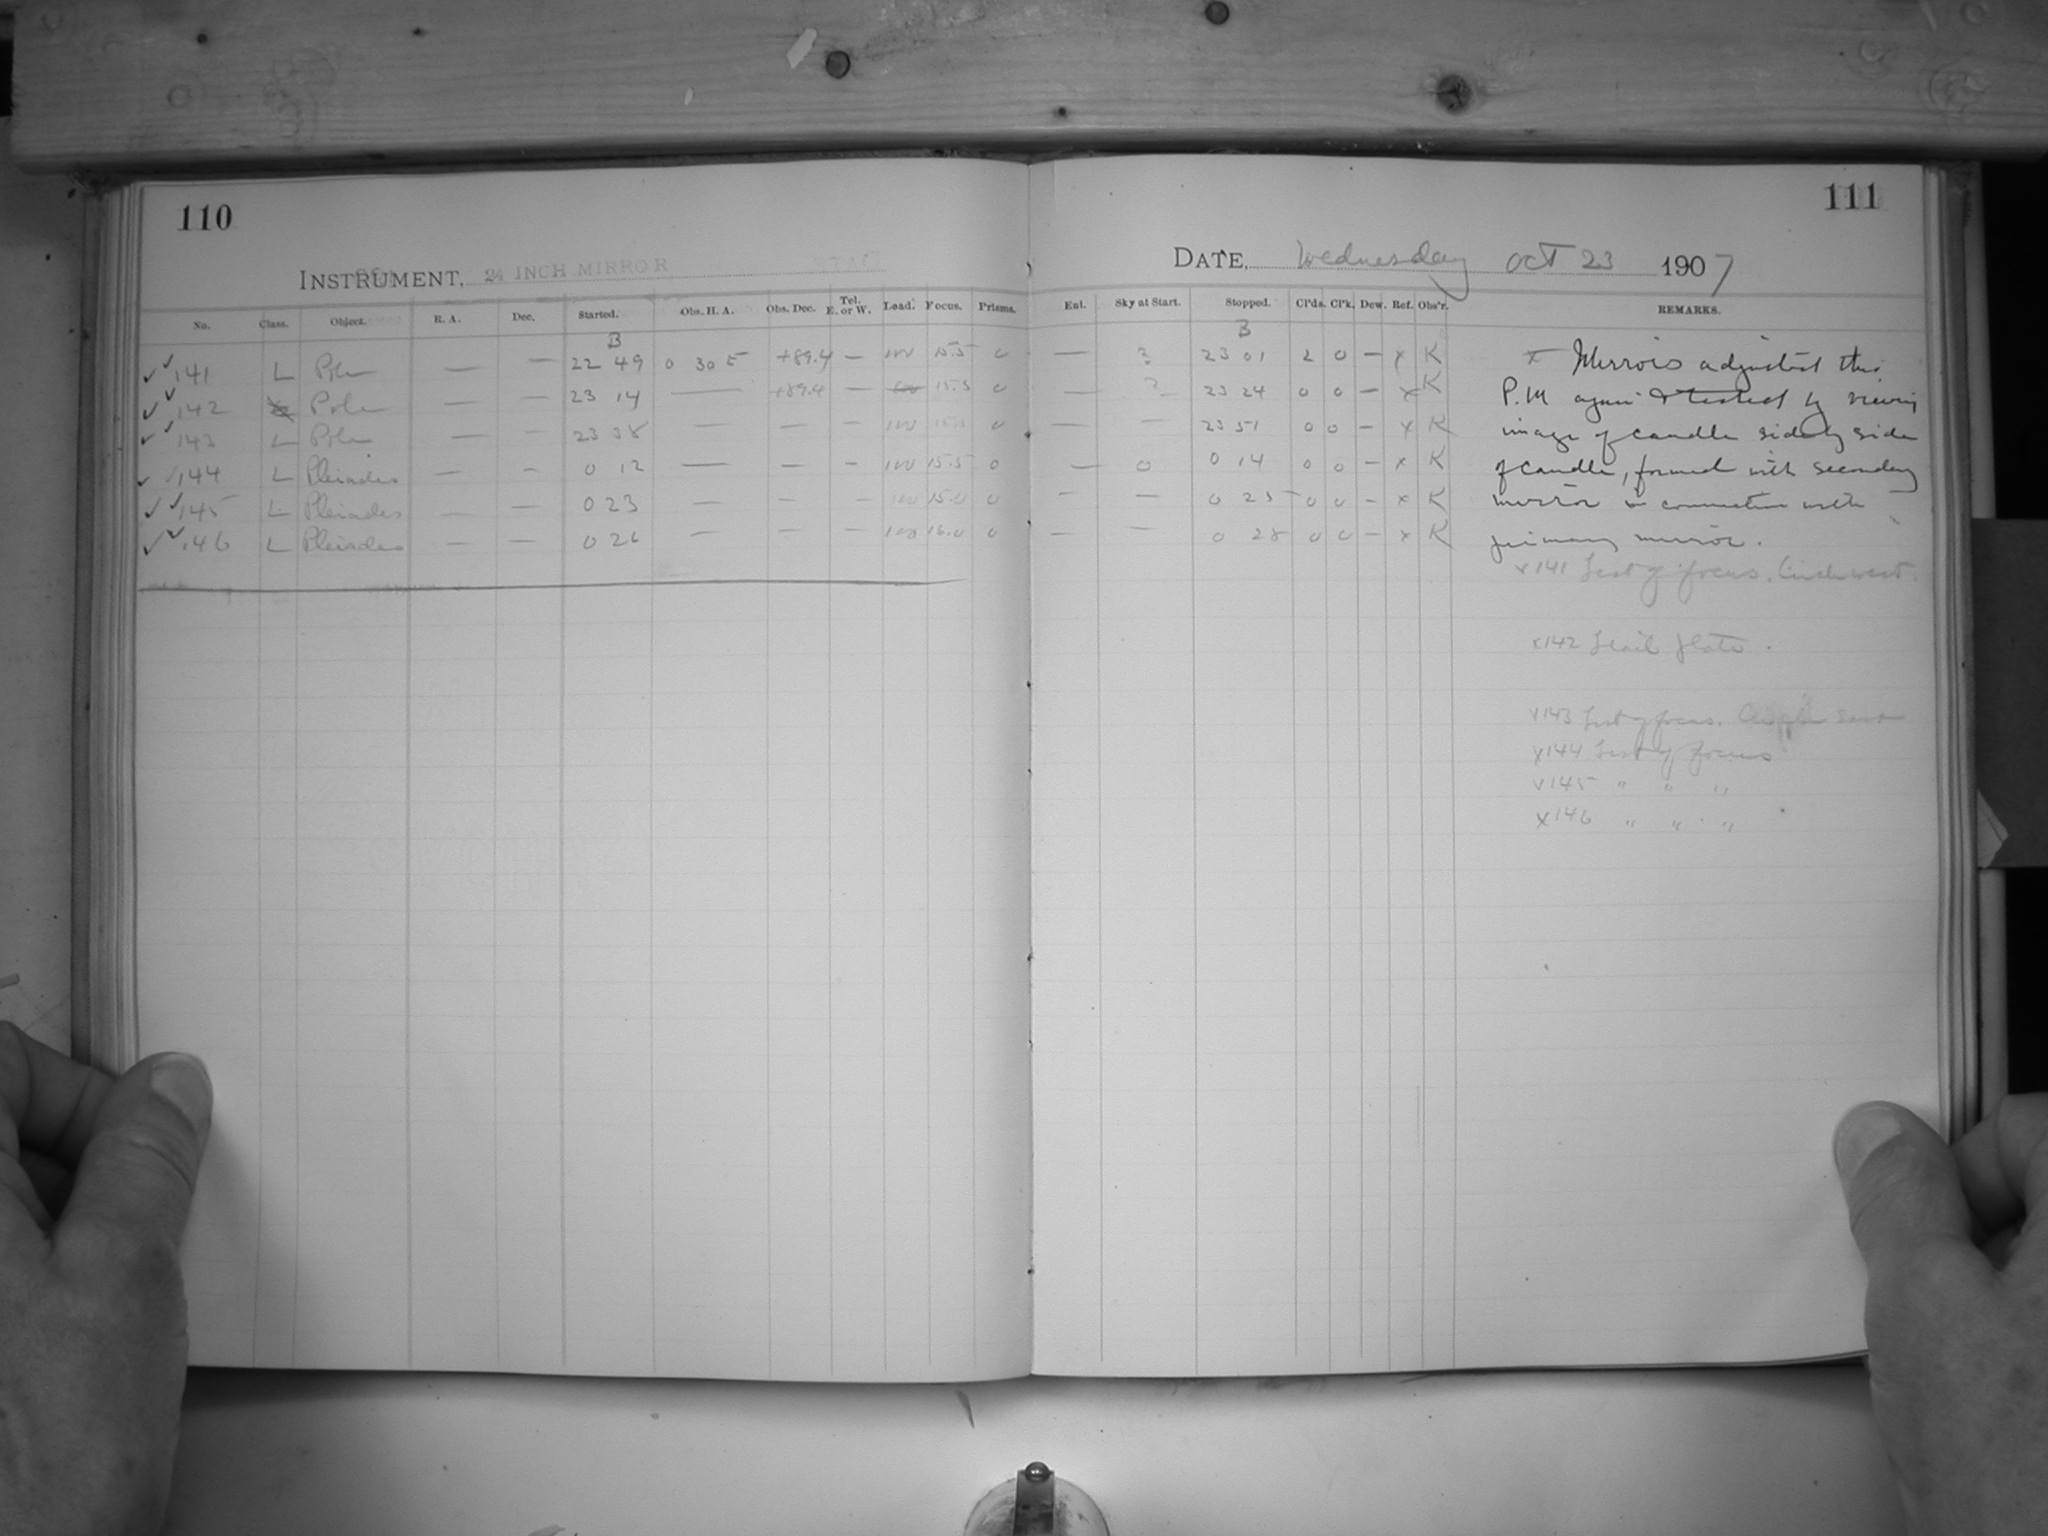 110
INSTRUMENT, 24 INCH MIRROR
No. Class. Object. R. A. Dec. Started. Obs. H. A. Obs. Dec. Tel. E. or W. Lead. Focus. Prisms.
B
✓✓141 L Pole — — 22 49 0 30 E +89.4 — 100 15.5 0
✓✓142 Pole — — 23 14 — +89.4 — 15.5 0
✓✓143 L Pole — — 23 38 — — — 100 15.5 0
✓✓144 L Pleiades — — 0 12 — — — 100 15.5 0
✓✓145 L Pleiades — — 0 23 — — — 100 15.0 0
✓✓146 L Pleiades — — 0 26 — — — 100 16.0 0
111
DATE, Wednesday Oct 23 1907
Enl. Sky at Start. Stopped. Cl'ds. Cl'k. Dew. Ref. Obs'r. REMARKS.
B
— 3 23 01 2 0 — x K
— 23 24 0 0 — x K
— — 23 51 0 0 — x K
— 0 0 14 0 0 — x K
— — 0 25 0 0 — x K
— — 0 28 0 0 — x K
x Mirrors adjusted this
P.M again & tested by viewing
image of candle side by side
of candle, formed with secondary
mirror in connection with
primary mirror.
x141 Test of focus. Circle west.
x142 Trail plate.
x143 Test of focus.
x144 Test of focus
x145 " " "
x146 " " "